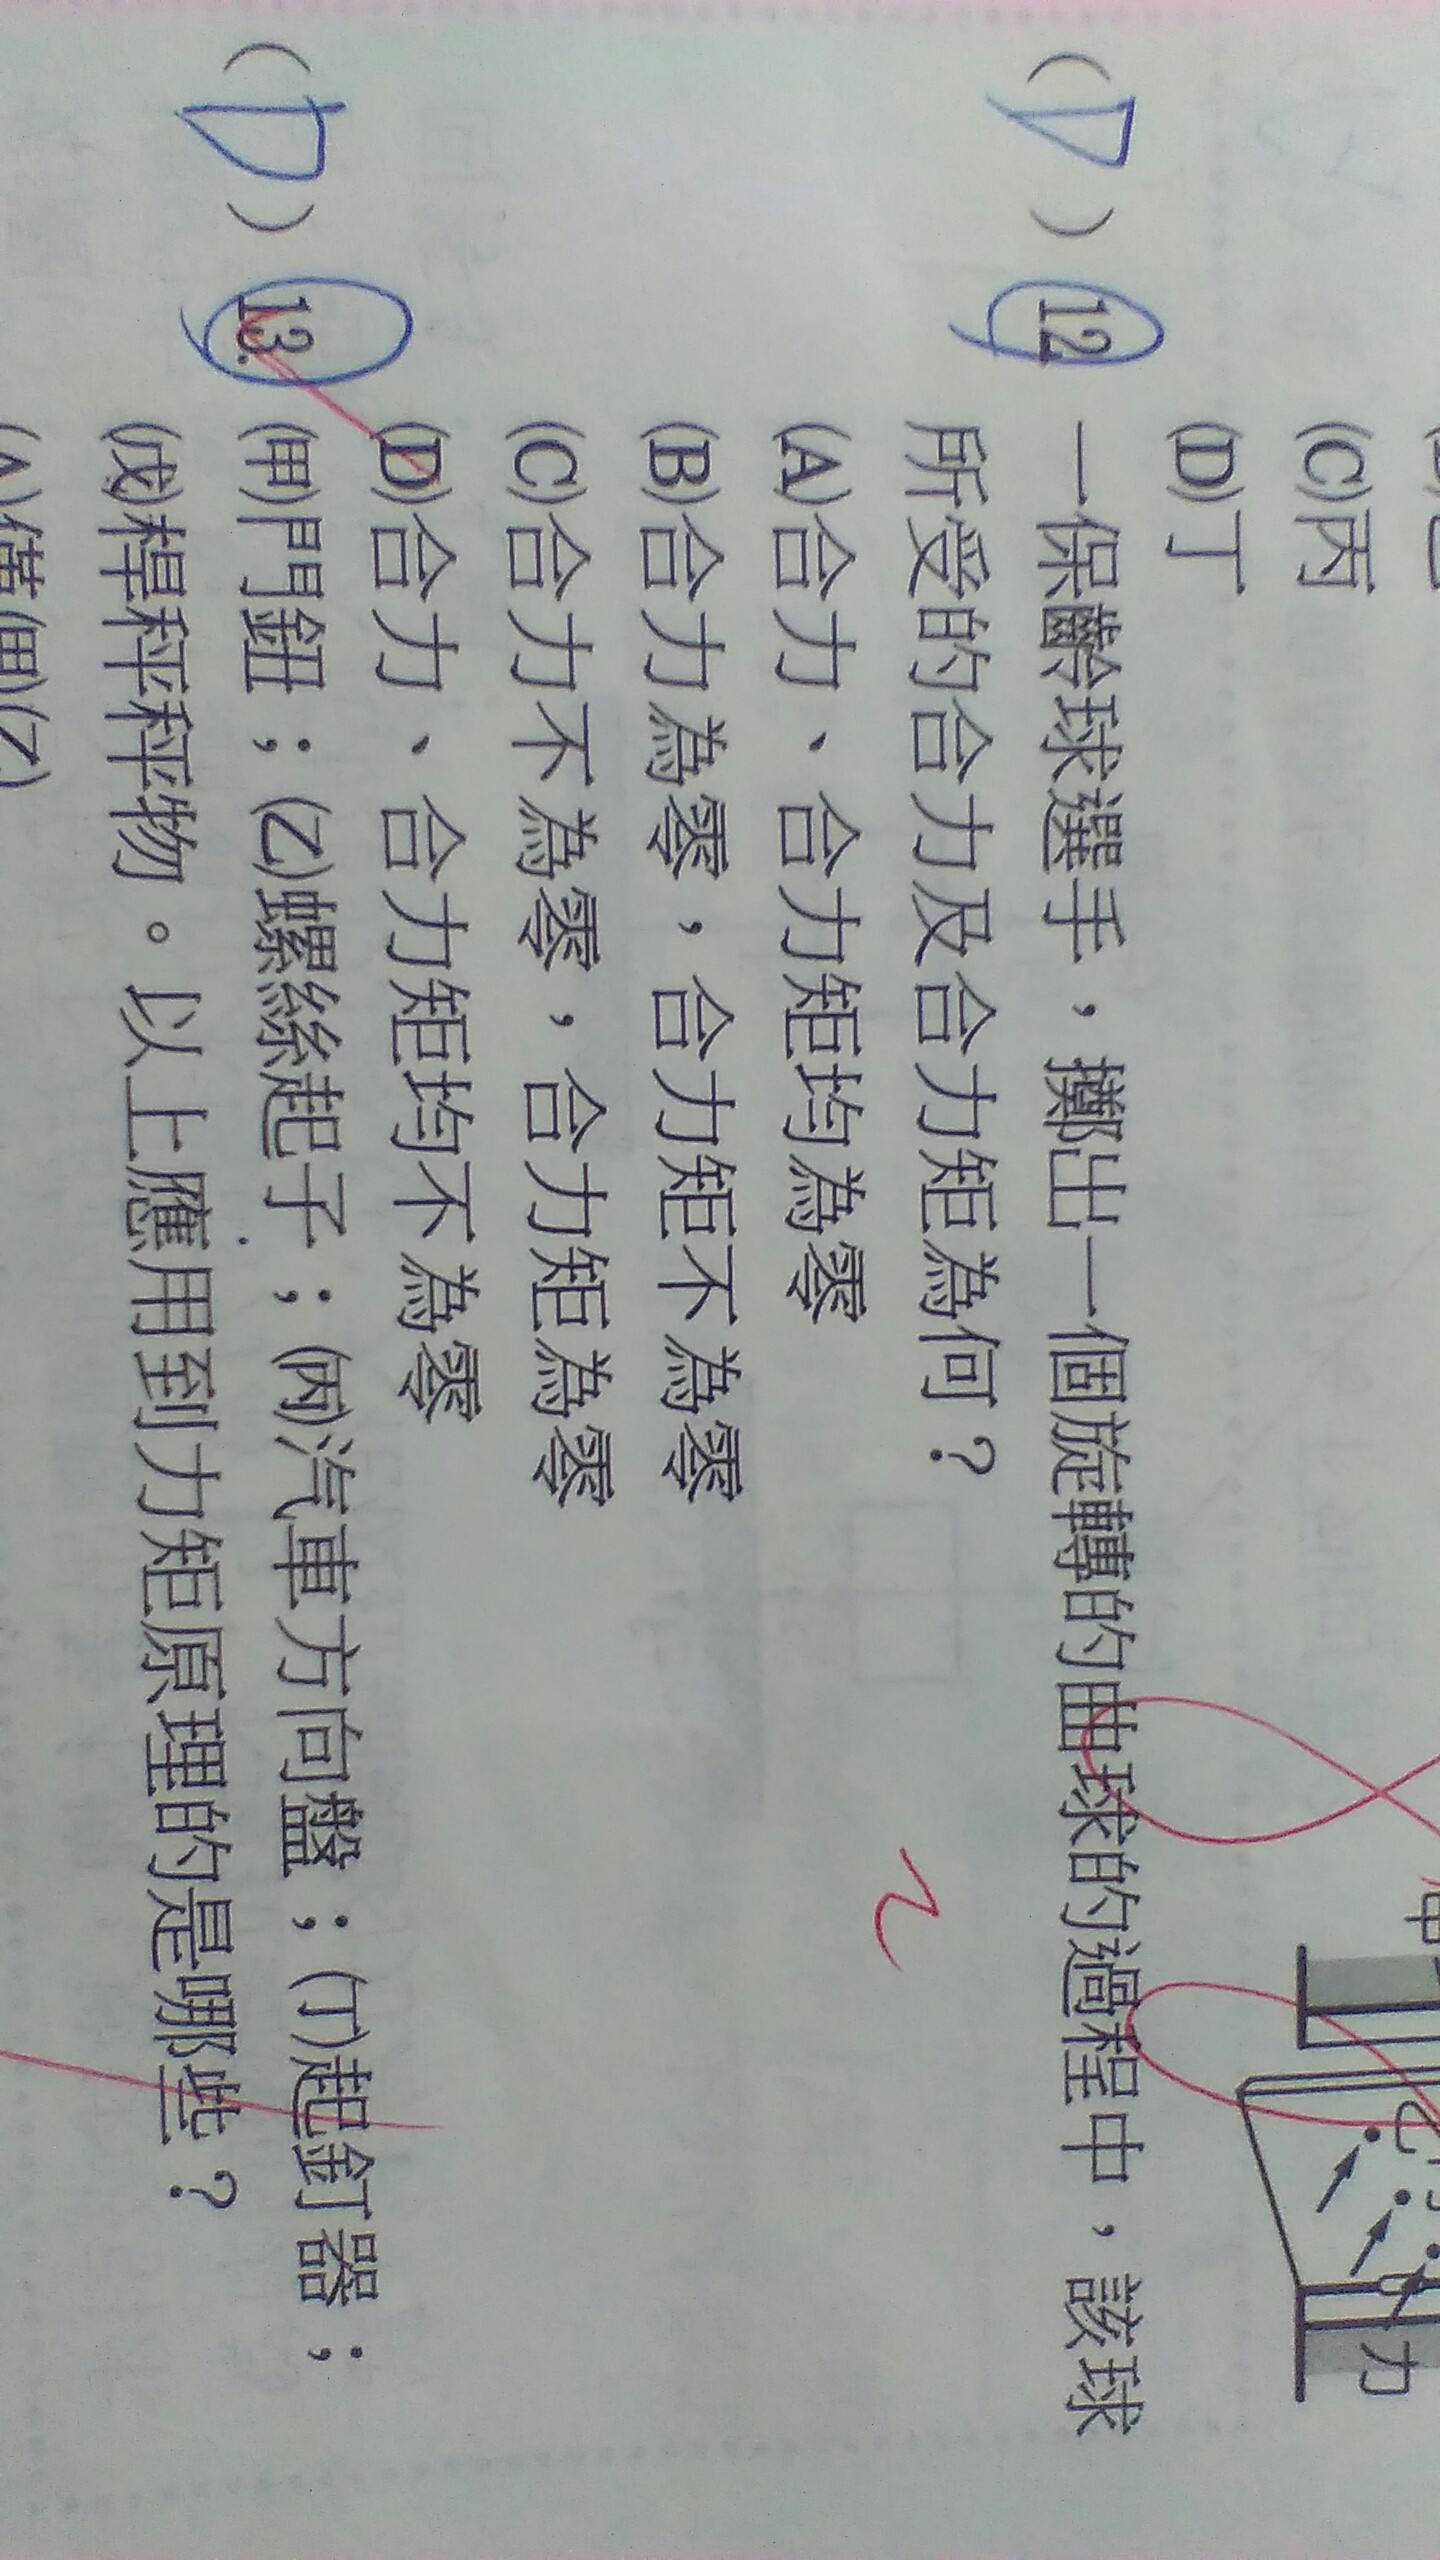 (C)丙
(D)丁
(D) 12 一保齡球選手，擲出一個旋轉的曲球的過程中，該球
所受的合力及合力矩為何？
(A)合力、合力矩均為零
(B)合力為零，合力矩不為零
(C)合力不為零，合力矩為零
(D)合力、合力矩均不為零
(D) 13. (甲)門鈕；(乙)螺絲起子；(丙)汽車方向盤；(丁)起釘器；
(戊)桿秤秤物。以上應用到力矩原理的是哪些？
(A)僅(甲)(乙)
力